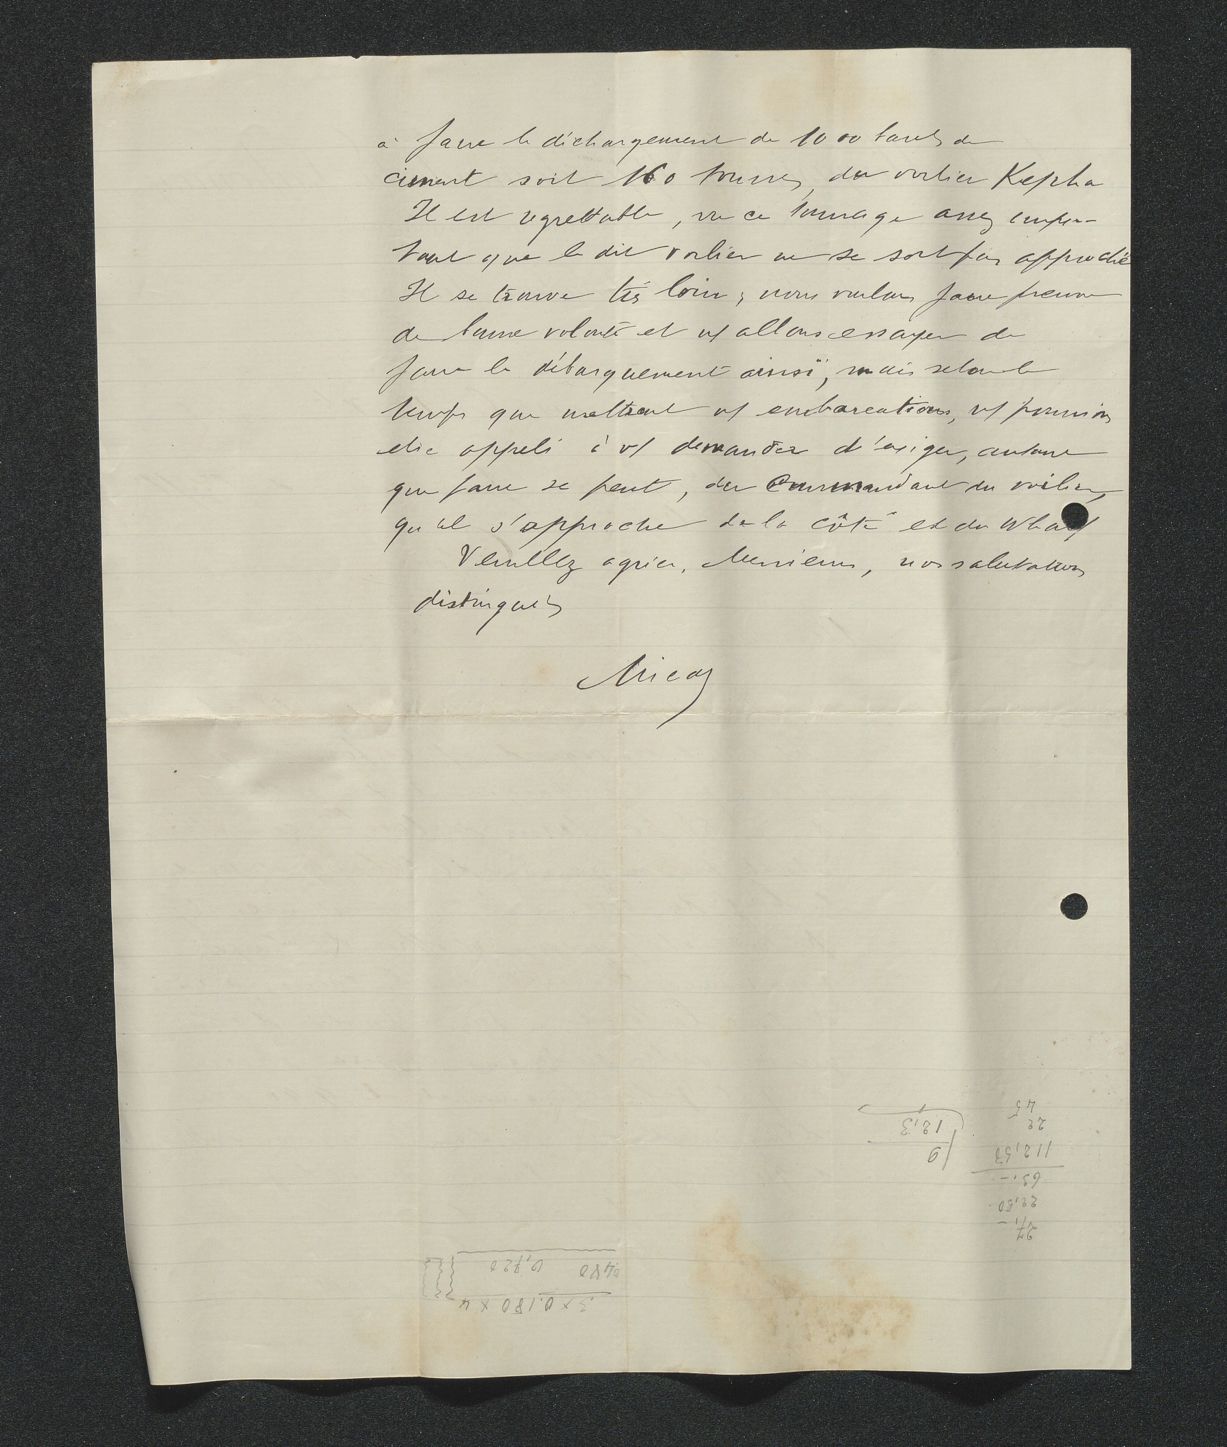 à faire le déchargement de 1000 barils de
ciment soit 160 tonnes, du voilier Kepha
Il est regrettable, vu ce tonnage assez impor-
tant que le dit voilier ne se soit pas approché
Il se trouve très loin; nous voulons faire preuve
de bonne volonté et n/ allons essayer de
faire le débarquement ainsi, mais selon le
temps que mettront n/ embarcations, n/ pourrions
être appelé à v/ demander d'exiger, autant
que faire se peut, du Commandant du voilier,
qu'il s'approche de la côte et du Wharf
Veuillez agréer, Messieurs, nos salutations
distingués
45
22
12,3
112,50
9
63.-
22,50
27,-
480 0,720
3 x 0.180 x 4